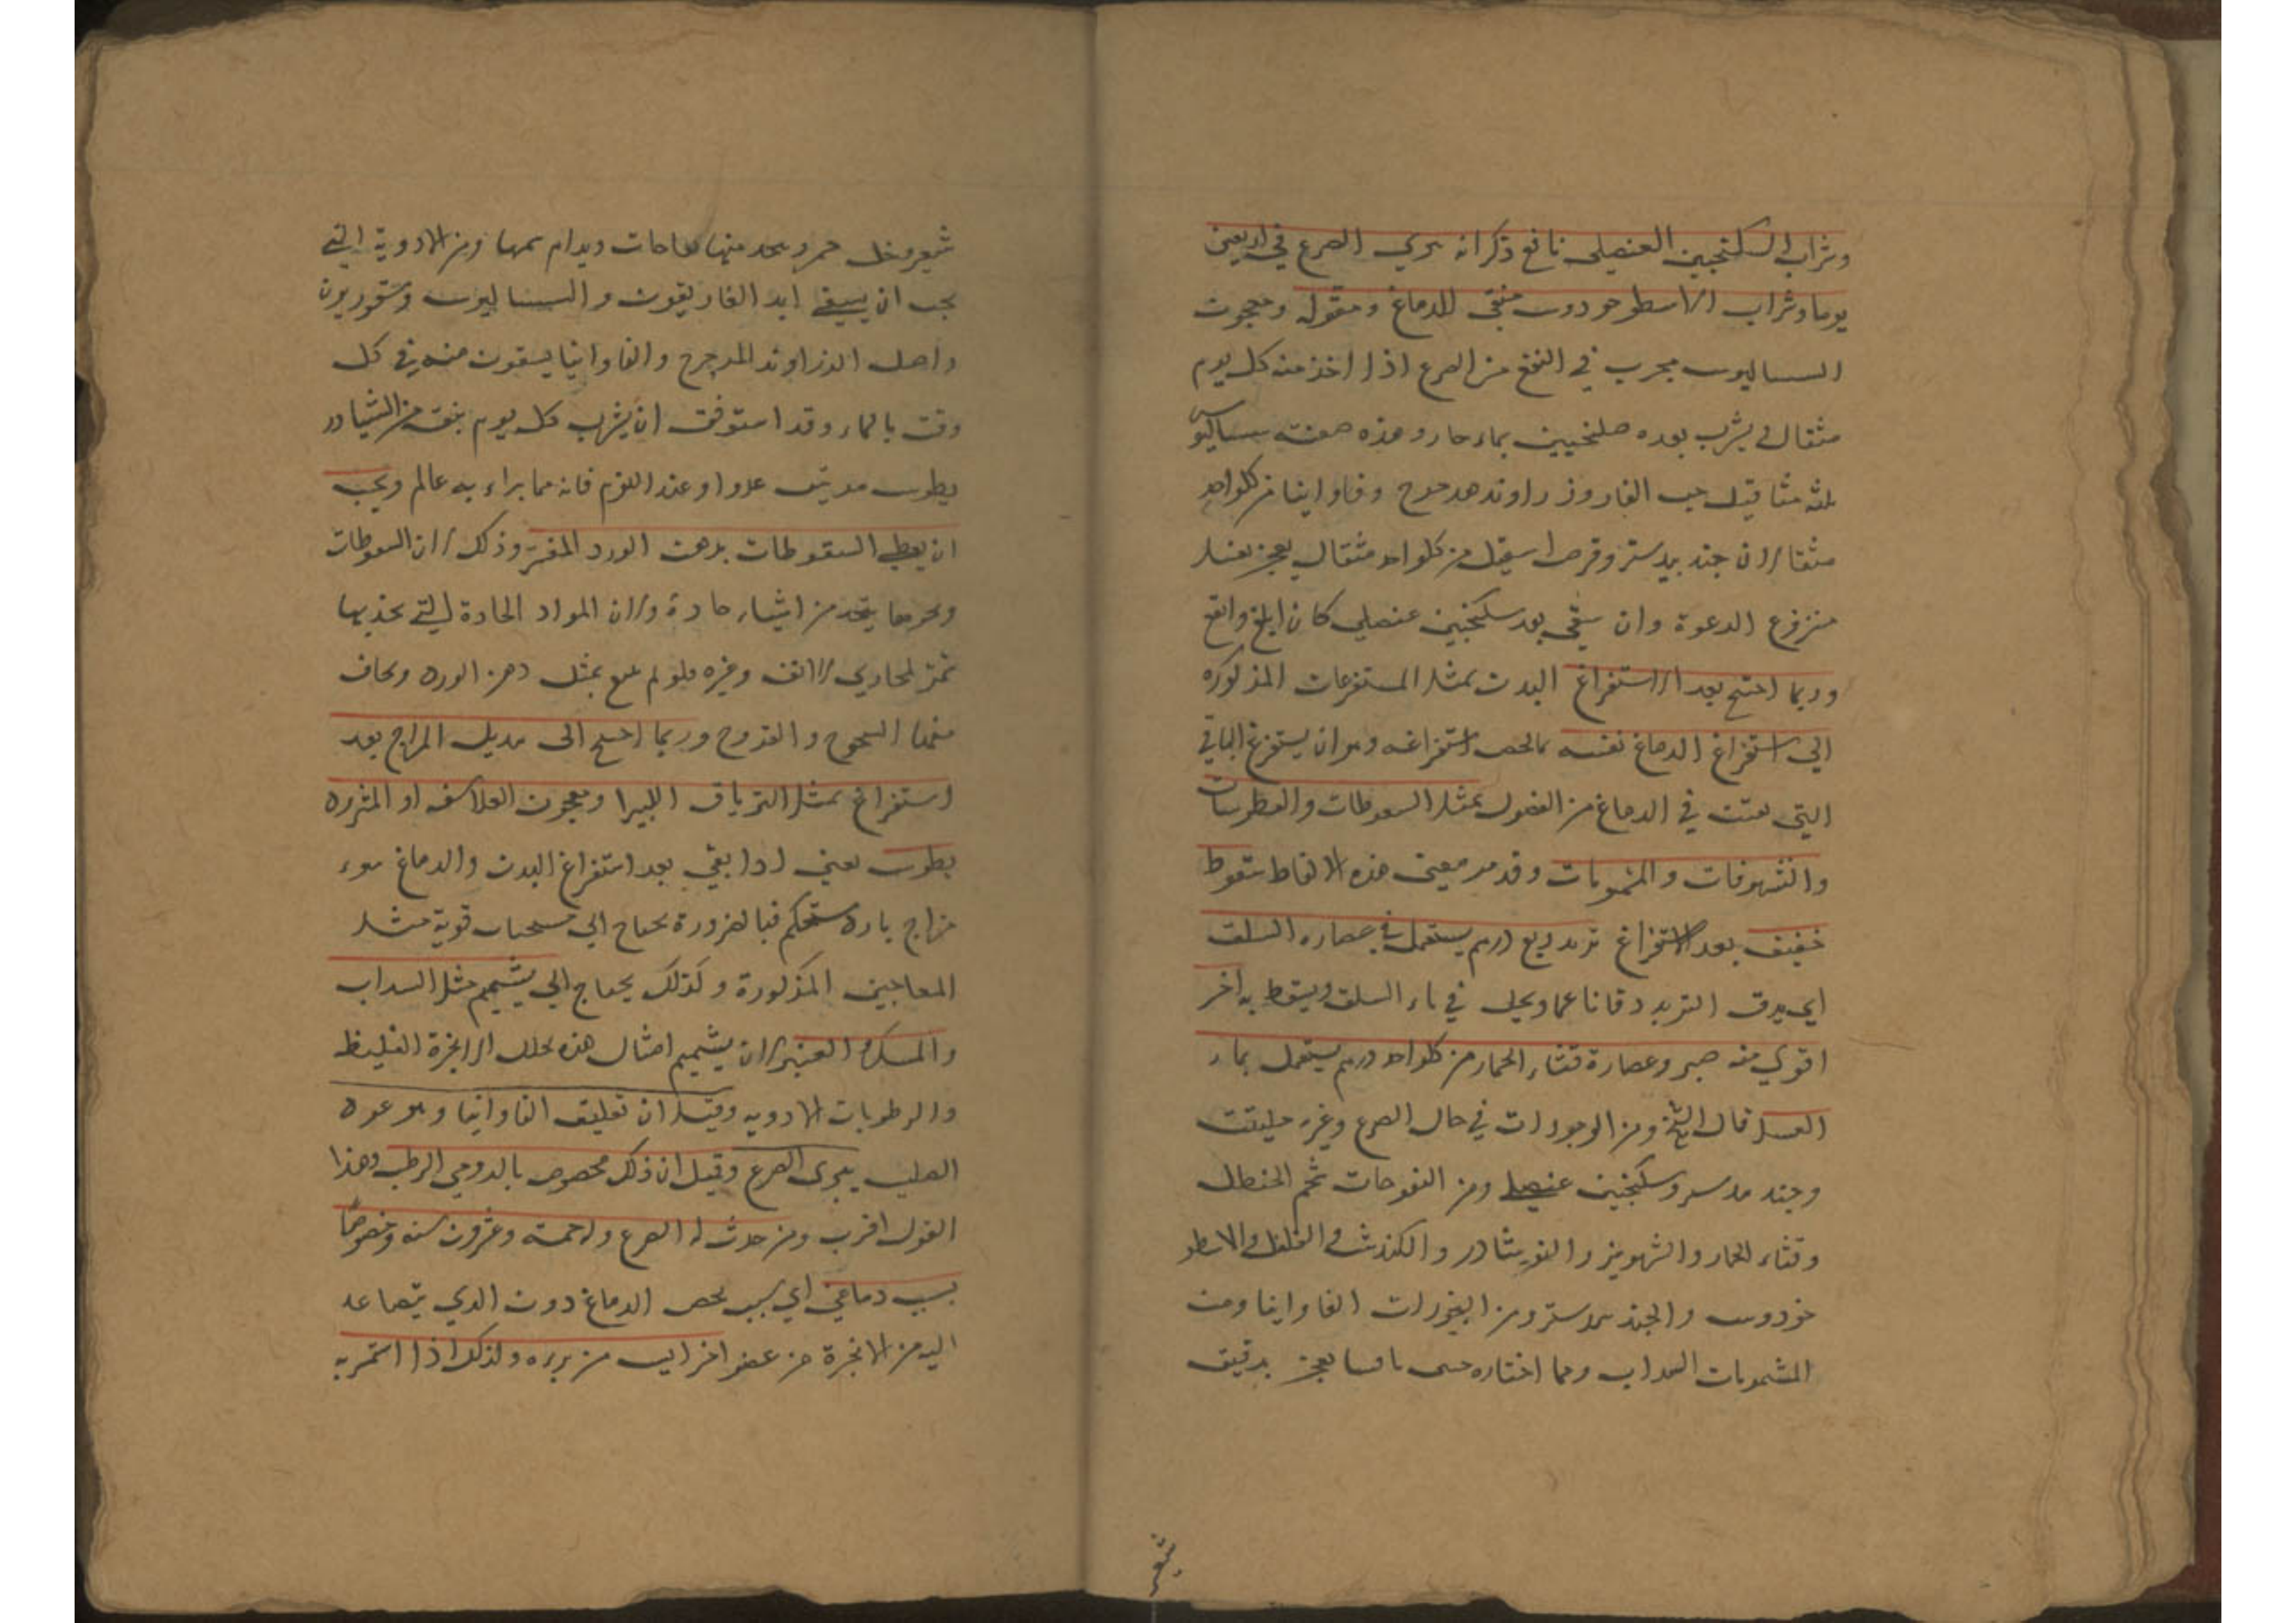 وشراب السكنجبين العنصلي نافع ذكر انه يبري الصرع في اربعين
يوما وشراب الاسطوخودوس منقي للدماغ ومقوله ومعجون
السساليوس مجرب في النفع من الصرع اذا اخذ منه كل يوم
مثقال يشرب بعده بماء حار وهذه صفته سساليوس
ثلثه مثاقيل حب الغار وزراوند مدحرج وفاوانيا من كلواحد
مثقالان جندبيدستر وقرص اسقيل من كلواحد مثقال يعجن بعسل
منزوع الدعوة وان سقي بعد سكنجبين عنصلي كان ابلغ وانفع
وربما احتيج بعد الاستفراغ البدن بمثل المستفرغات المذكوره
الي استفراغ الدماغ نفسه بالحص استفراغه وهو ان يستفرغ الباقي
التي بقيت في الدماغ من الفضول بمثل السعوطات والعطوسات
والنشوقات والمشمومات وقد مر معنى هذه الالفاظ سعوط
خفيف بعد الاستفراغ تربد ربع درهم يستعمل في عصاره السلق
اي يدق التربد دقا ناعما ويحل في ماء السلق ويسقط به اخر
اقوي منه صبر وعصارة قثاء الحمار من كلواحد درهم يستعمل بماء
العسل قال الشيخ ومن الوجورات في حال الصرع وغيره حليتت
وجند بيدستر وسكنجبين عنصلي ومن النفوخات شحم الحنظل
وقثاء الحمار والشونيز والنوشادر والكندش والفلفل والاسطو
خودوس والجند بيدستر ومن البخورات الفاوانيا ومن
المشمومات السداب ومما اختاره يعجن بدقيق
شعير
شعير وخل خمر ويتخذ منها ويدام شمها ومن الادوية التي
يجب ان يسقي ابدا الغاريقون والسساليوس وسقورديون
واصل الزراوند المدحرج والفاوانيا يسقون منه في كل
وقت بالماء وقد استوفق ان يشرب كل يوم من الشيادر
يطوس مرتين غدوا وعند النوم فانه مما براء به عالم ويجب
ان يعطي السقوطات بدهن الورد المفتر وذلك لان السعوطات
ونحوها يتخذ من اشياء حادة ولان المواد الحادة التي تجذبها
تمر لمجاري الانف وغيره فلو لم بمثل دهن الورد وتخاف
منها السحوج والقروح وربما احتيج الى تبديل المزاج بعد
استفراغ بمثل الترياق الكبير ومعجون الفلاسفه او المثرود
يطوس يعني اذا بقي بعد استفراغ البدن والدماغ سوء
مزاج بارد ستحكم فبالضرورة يحتاج الي مسخنات قوية مثل
المعاجين المذكورة وكذلك يحتاج الي يشميم مثل السداب
والمسك والعنبر لان يشميم امثال هذه تحلل الابخرة الغليظ
والرطوبات الادويه وقيل ان تعليق الفاوانيا وهو عود
الصليب يبري الصرع وقيل ان ذلك مخصوص بالرومي الرطب وهذا
القول اقرب ومن حدث له الصرع وله خمسة وعشرون سنه وخصوصا
بسبب دماغي اي بسبب يخص الدماغ دون الذي يتصاعد
اليه من الابخرة من عضو اخر ايس من برءه ولذلك اذا استمر به